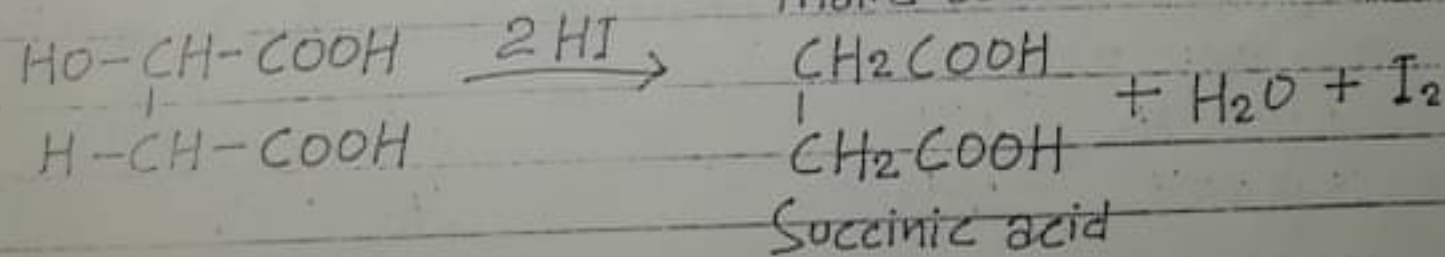 HO-CH-COOH 2HI CH2COOH
+ H2O + I2
H-CH-COOH CH2-COOH
Succinic acid